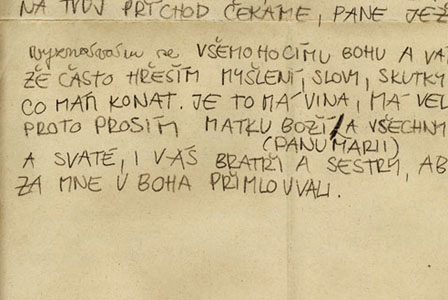 NA TVŮJ PŘÍCHOD ČEKÁME, PANE JEŽ
vyznávám se VŠEMOHOCÍMU BOHU A VÁ
ŽE ČASTO HŘEŠÍM MYŠLENÍ, SLOVY, SKUTKY
CO MÁM KONAT. JE TO MÁ VINA, MÁ VEL
PROTO PROSÍM MATKU BOŽÍ A VŠECHNY
(PANU MARII)
A SVATÉ, I VÁS BRATŘI A SESTRY, AB
ZA MNE U BOHA PŘIMLOUVALI.